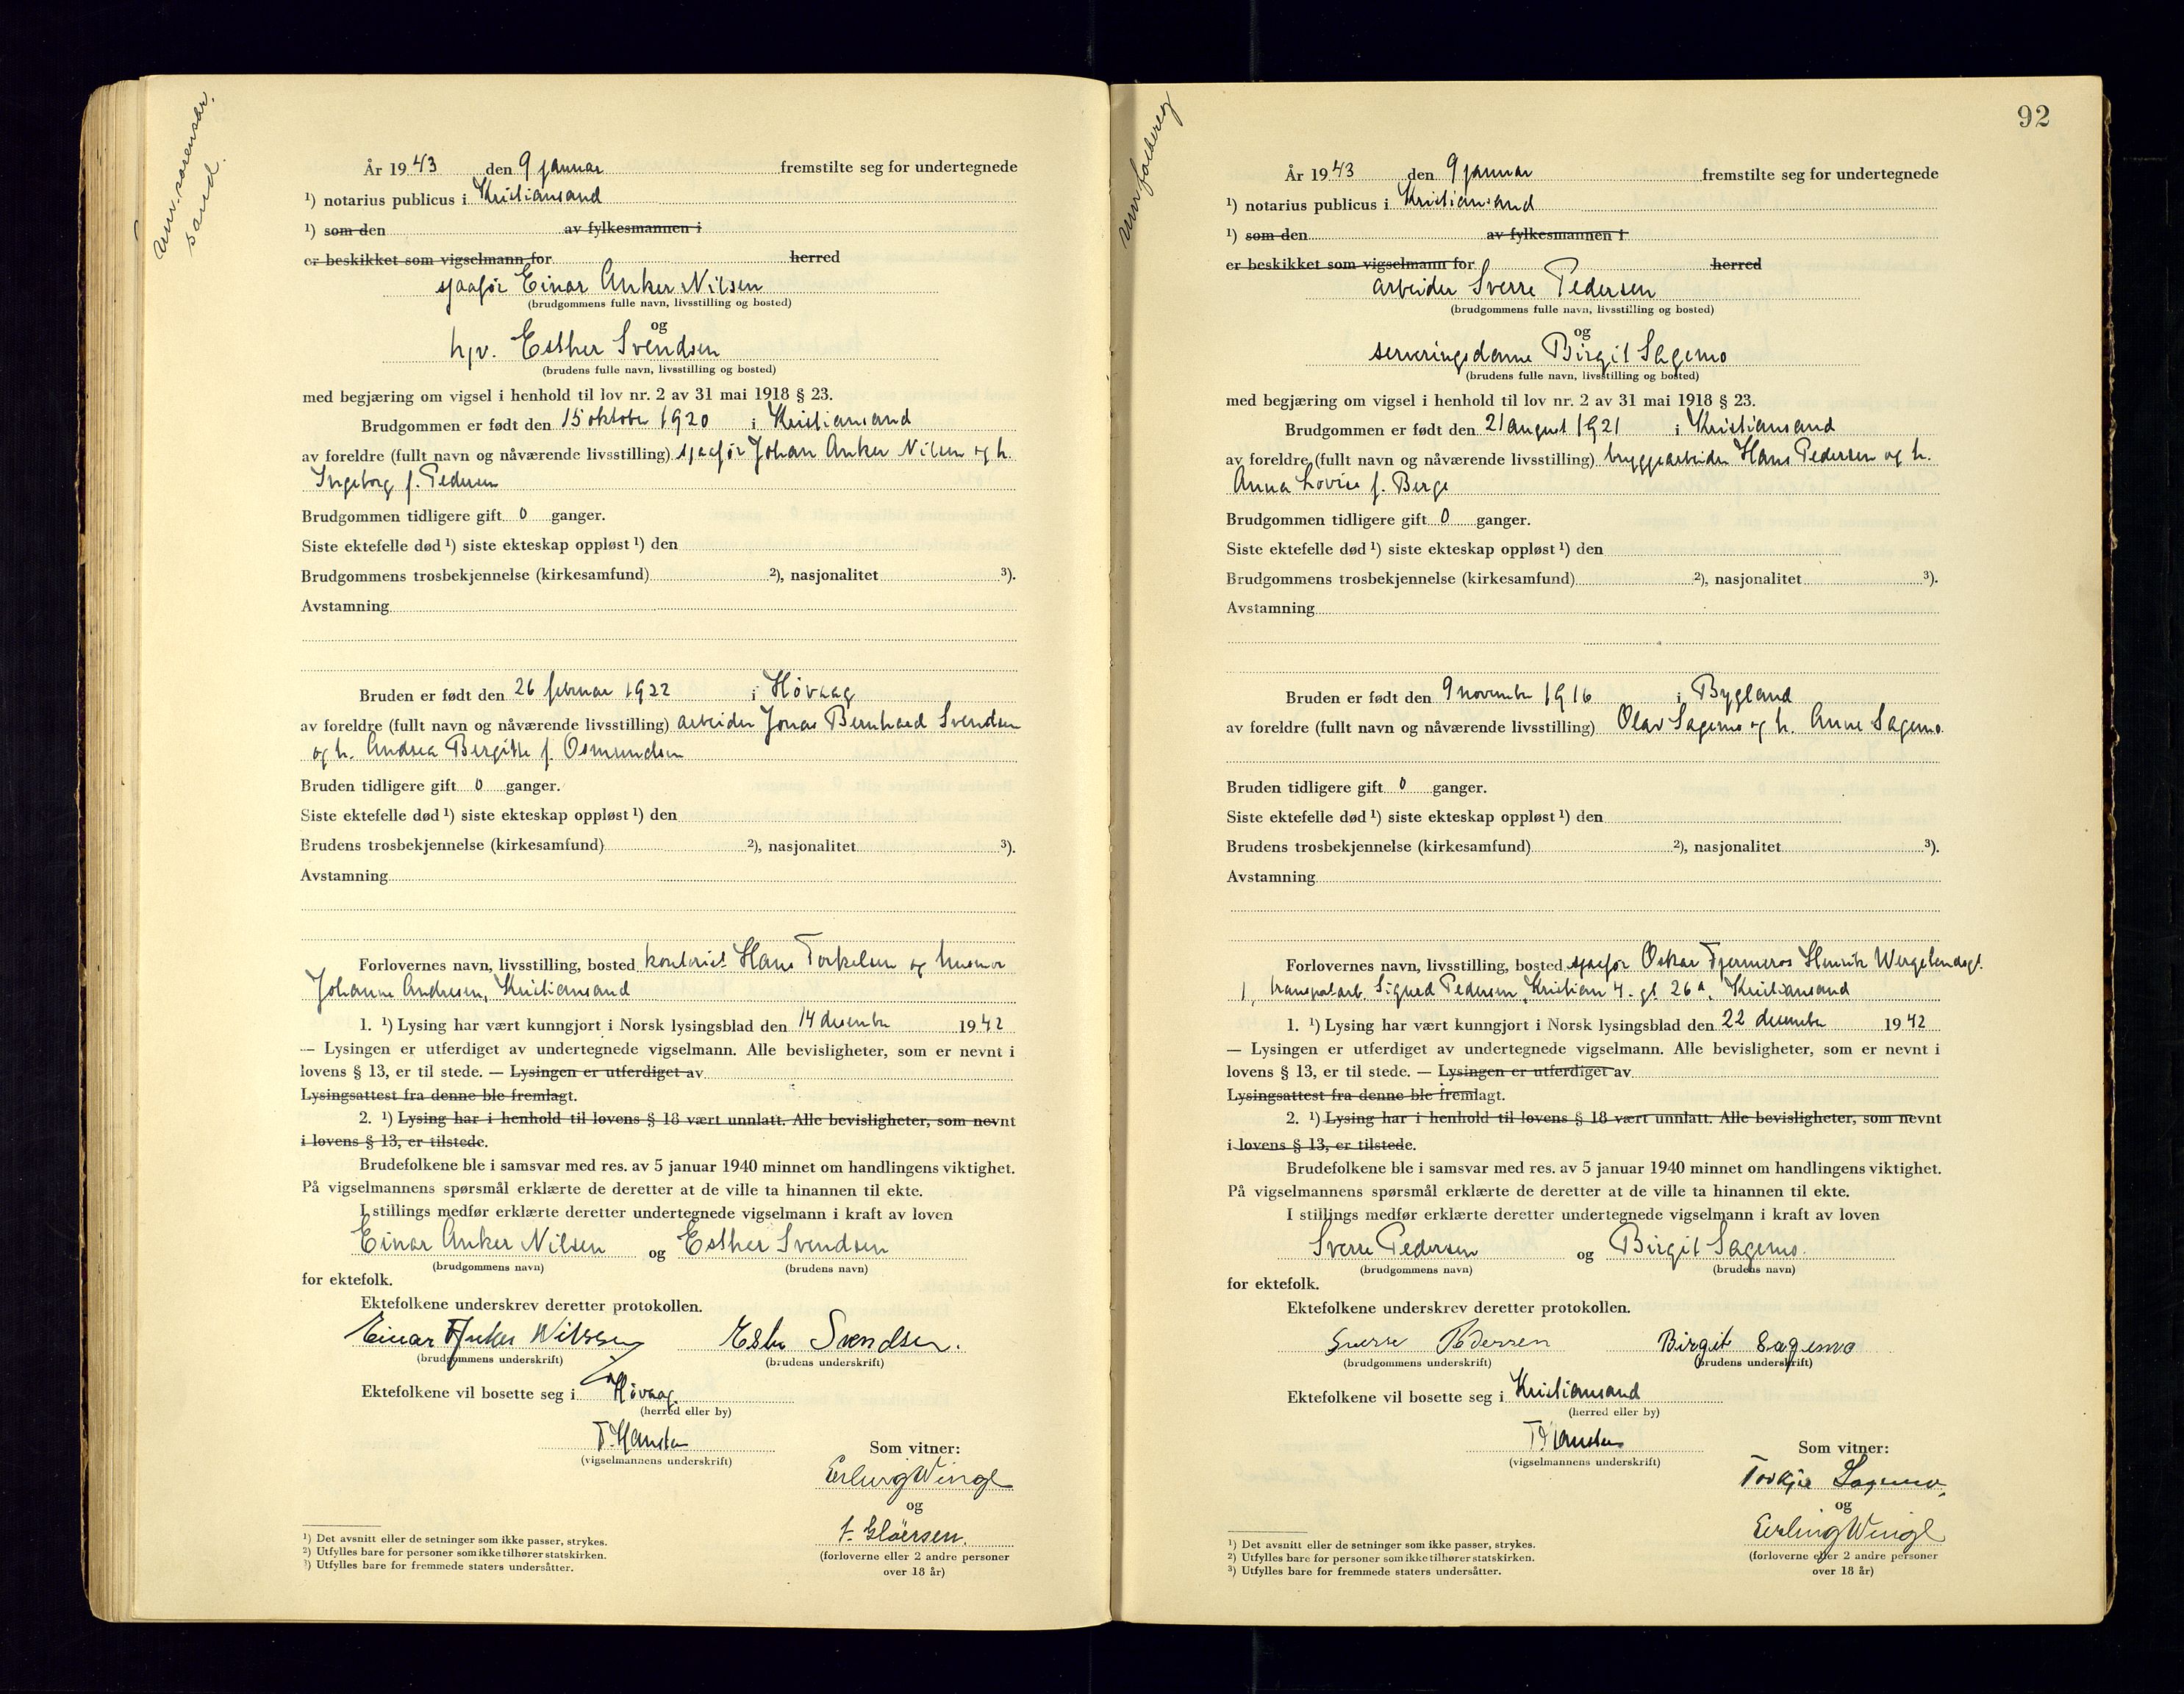 sand.
År 1943 den 9 januar fremstilte seg for undertegnede
¹) notarius publicus i Kristiansand
¹) som den av fylkesmannen i
er beskikket som vigselmann for herred
sjaafør Einar Anker Nilsen
(brudgommens fulle navn, livsstilling og bosted)
og
hjv. Esther Svendsen
(brudens fulle navn, livsstilling og bosted)
med begjæring om vigsel i henhold til lov nr. 2 av 31 mai 1918 § 23.
Brudgommen er født den 15 oktober 1920 i Kristiansand
av foreldre (fullt navn og nåværende livsstilling) sjaafør Johan Anker Nilsen og h.
Ingeborg f. Pedersen
Brudgommen tidligere gift 0 ganger.
Siste ektefelle død ¹) siste ekteskap oppløst ¹) den
Brudgommens trosbekjennelse (kirkesamfund) ²), nasjonalitet ³).
Avstamning
Bruden er født den 26 februar 1922 i Høvaag
av foreldre (fullt navn og nåværende livsstilling) arbeider Jonas Bernhard Svendsen
og h. Andrea Bergitte f. Osmundsen
Bruden tidligere gift 0 ganger.
Siste ektefelle død ¹) siste ekteskap oppløst ¹) den
Brudens trosbekjennelse (kirkesamfund) ²), nasjonalitet ³).
Avstamning
Forlovernes navn, livsstilling, bosted kontorist Hans Torkelsen og husmor
Johanne Andresen, Kristiansand
1. ¹) Lysing har vært kunngjort i Norsk lysingsblad den 14 desember 1942
— Lysingen er utferdiget av undertegnede vigselmann. Alle bevisligheter, som er nevnt i
lovens § 13, er til stede. — Lysingen er utferdiget av
Lysingsattest fra denne ble fremlagt.
2. ¹) Lysing har i henhold til lovens § 18 vært unnlatt. Alle bevisligheter, som nevnt
i lovens § 13, er tilstede.
Brudefolkene ble i samsvar med res. av 5 januar 1940 minnet om handlingens viktighet.
På vigselmannens spørsmål erklærte de deretter at de ville ta hinannen til ekte.
I stillings medfør erklærte deretter undertegnede vigselmann i kraft av loven
Einar Anker Nilsen og Esther Svendsen
(brudgommens navn) (brudens navn)
for ektefolk.
Ektefolkene underskrev deretter protokollen.
Einar Anker Nilsen Svendsen.
(brudgommens underskrift) (brudens underskrift)
Ektefolkene vil bosette seg i Høvaag
(herred eller by)
T. Hansten
(vigselmannens underskrift)
Som vitner:
Erling Wingl
og
Gløersen.
(forloverne eller 2 andre personer
over 18 år)
¹) Det avsnitt eller de setninger som ikke passer, strykes.
²) Utfylles bare for personer som ikke tilhører statskirken.
³) Utfylles bare for fremmede staters undersåtter.
92
År 1943 den 9 januar fremstilte seg for undertegnede
¹) notarius publicus i Kristiansand
¹) som den av fylkesmannen i
er beskikket som vigselmann for herred
arbeider Sverre Pedersen
(brudgommens fulle navn, livsstilling og bosted)
og
serveringsdame Birgit Sagemo
(brudens fulle navn, livsstilling og bosted)
med begjæring om vigsel i henhold til lov nr. 2 av 31 mai 1918 § 23.
Brudgommen er født den 21 august 1921 i Kristiansand
av foreldre (fullt navn og nåværende livsstilling) bryggearbeider Hans Pedersen og h.
Anna Lovise f. Berge
Brudgommen tidligere gift 0 ganger.
Siste ektefelle død ¹) siste ekteskap oppløst ¹) den
Brudgommens trosbekjennelse (kirkesamfund) ²), nasjonalitet ³).
Avstamning
Bruden er født den 9 november 1916 i Bygland
av foreldre (fullt navn og nåværende livsstilling) Olav Sagemo og h. Anne Sagemo
Bruden tidligere gift 0 ganger.
Siste ektefelle død ¹) siste ekteskap oppløst ¹) den
Brudens trosbekjennelse (kirkesamfund) ²), nasjonalitet ³).
Avstamning
Forlovernes navn, livsstilling, bosted sjaafør Oskar Tjermeros Henrik Wergelandsgt.
1, transportarb. Sigurd Pedersen, Kristian 4. gt 26a, Kristiansand
1. ¹) Lysing har vært kunngjort i Norsk lysingsblad den 22 desember 1942
— Lysingen er utferdiget av undertegnede vigselmann. Alle bevisligheter, som er nevnt i
lovens § 13, er til stede. — Lysingen er utferdiget av
Lysingsattest fra denne ble fremlagt.
2. ¹) Lysing har i henhold til lovens § 18 vært unnlatt. Alle bevisligheter, som nevnt
i lovens § 13, er tilstede.
Brudefolkene ble i samsvar med res. av 5 januar 1940 minnet om handlingens viktighet.
På vigselmannens spørsmål erklærte de deretter at de ville ta hinannen til ekte.
I stillings medfør erklærte deretter undertegnede vigselmann i kraft av loven
Sverre Pedersen og Birgit Sagemo.
(brudgommens navn) (brudens navn)
for ektefolk.
Ektefolkene underskrev deretter protokollen.
Sverre Pedersen Birgit Sagemo
(brudgommens underskrift) (brudens underskrift)
Ektefolkene vil bosette seg i Kristiansand
(herred eller by)
T. Hansten
(vigselmannens underskrift)
Som vitner:
Torkjæ Sagemo,
og
Erling Wingl
(forloverne eller 2 andre personer
over 18 år)
¹) Det avsnitt eller de setninger som ikke passer, strykes.
²) Utfylles bare for personer som ikke tilhører statskirken.
³) Utfylles bare for fremmede staters undersåtter.